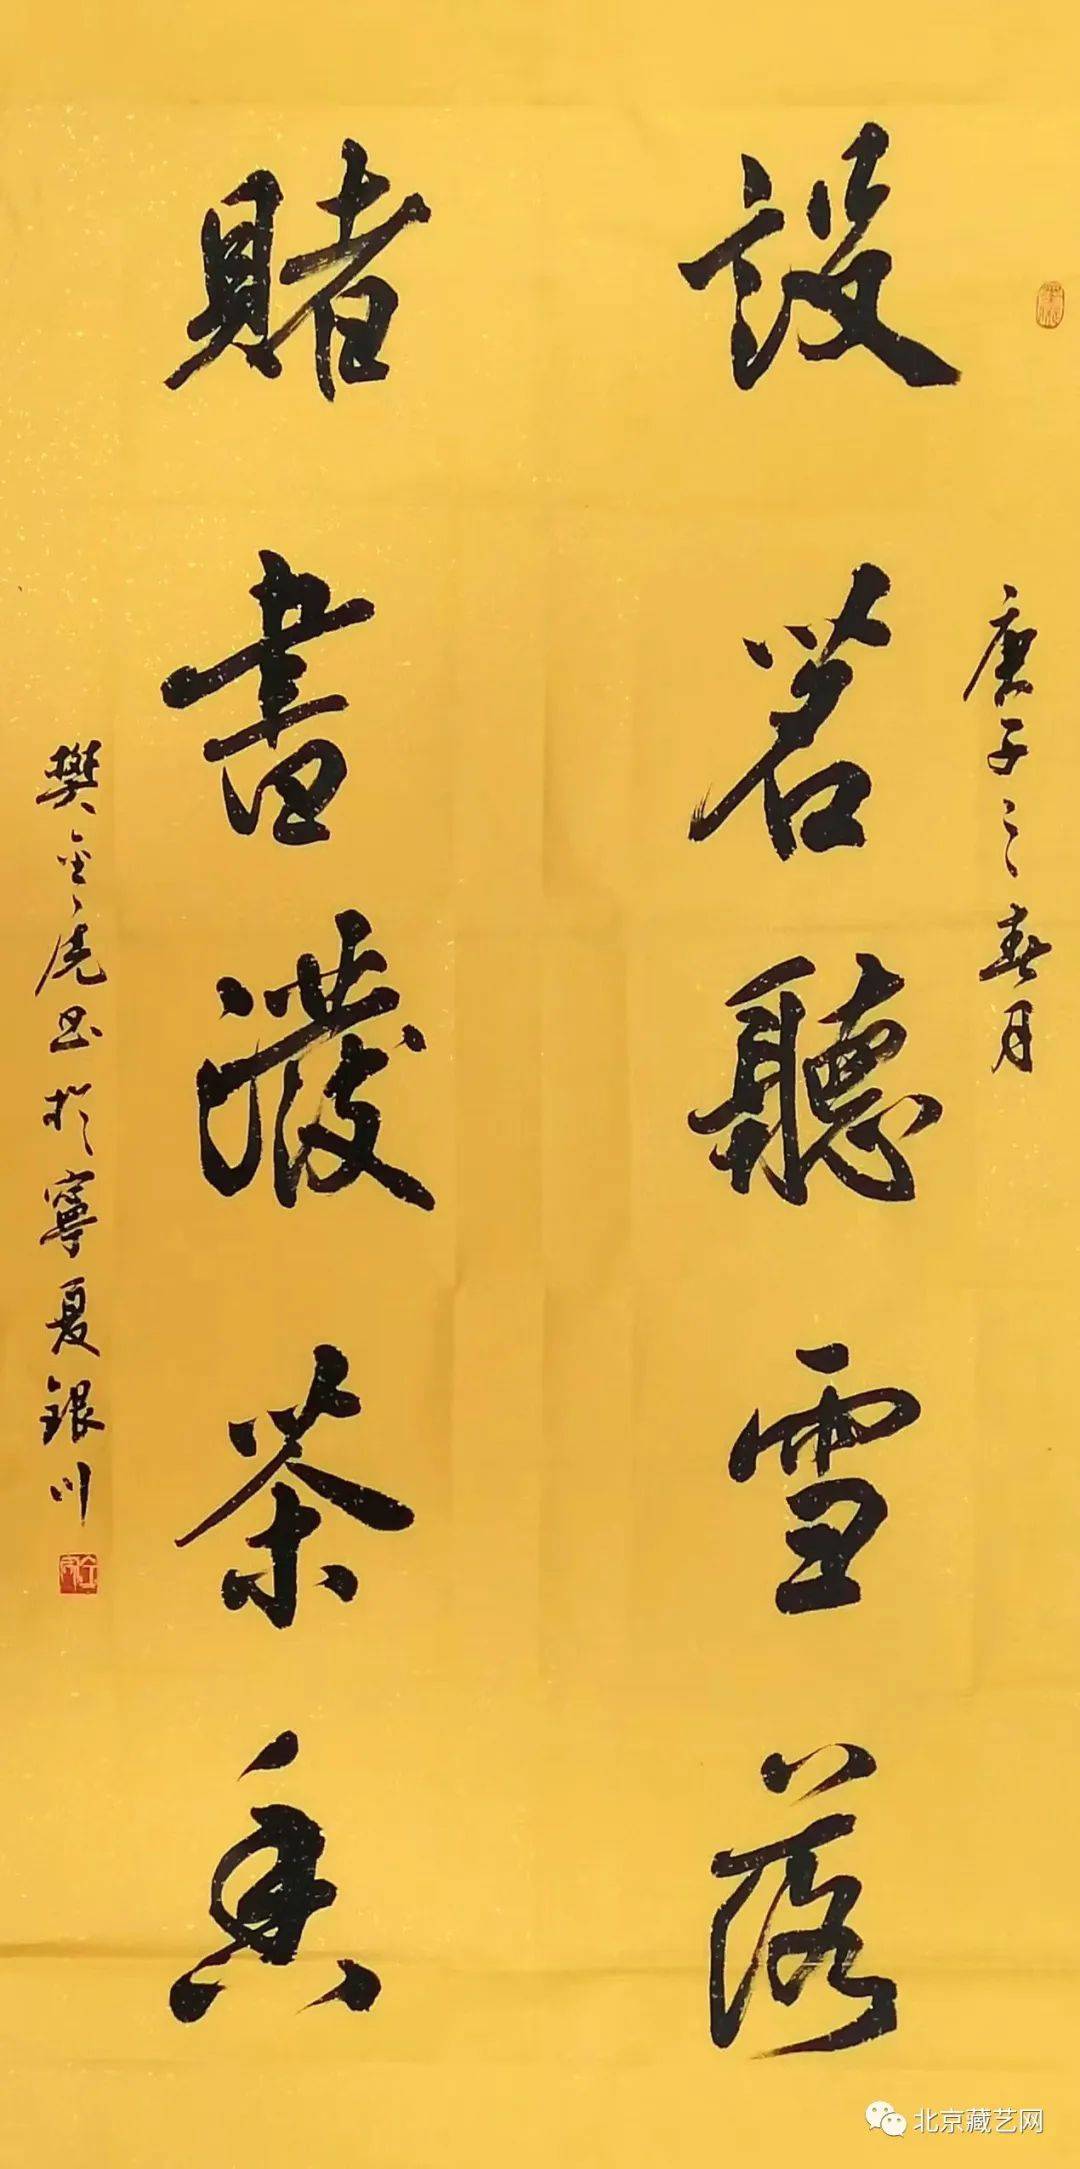 庚子之春月
設茗聽雪落
賭書潑茶香
樊金虎书於寧夏銀川
北京藏艺网